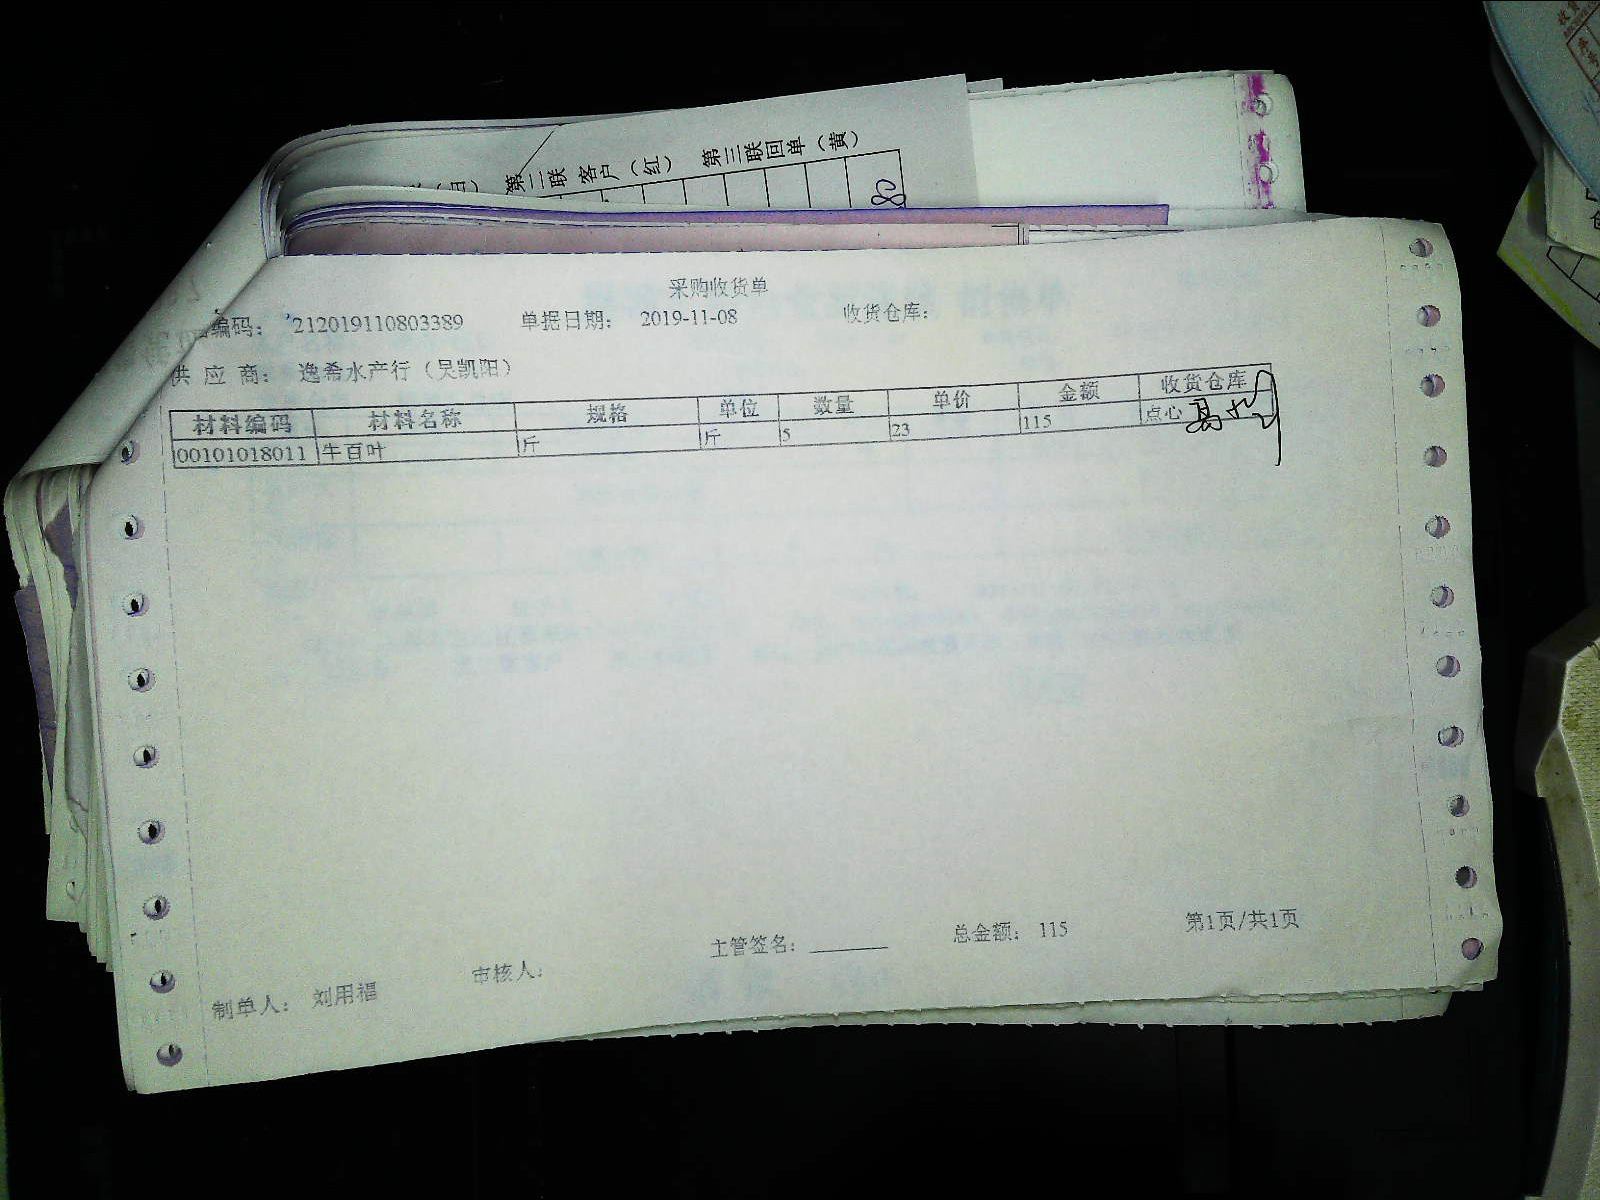 第二联 客户（红） 第三联回单（黄）
采购收货单
编码： 212019110803389 单据日期： 2019-11-08 收货仓库：
供 应 商： 逸希水产行（吴凯阳）
材料编码 材料名称 规格 单位 数量 单价 金额 收货仓库
00101018011 牛百叶 斤 斤 5 23 115 点心
主管签名： 总金额： 115 第1页/共1页
制单人： 刘用福 审核人：